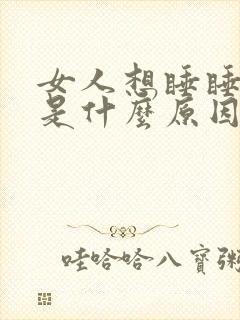 女人想睡睡
是什麼原因
哇哈哈八寶粥